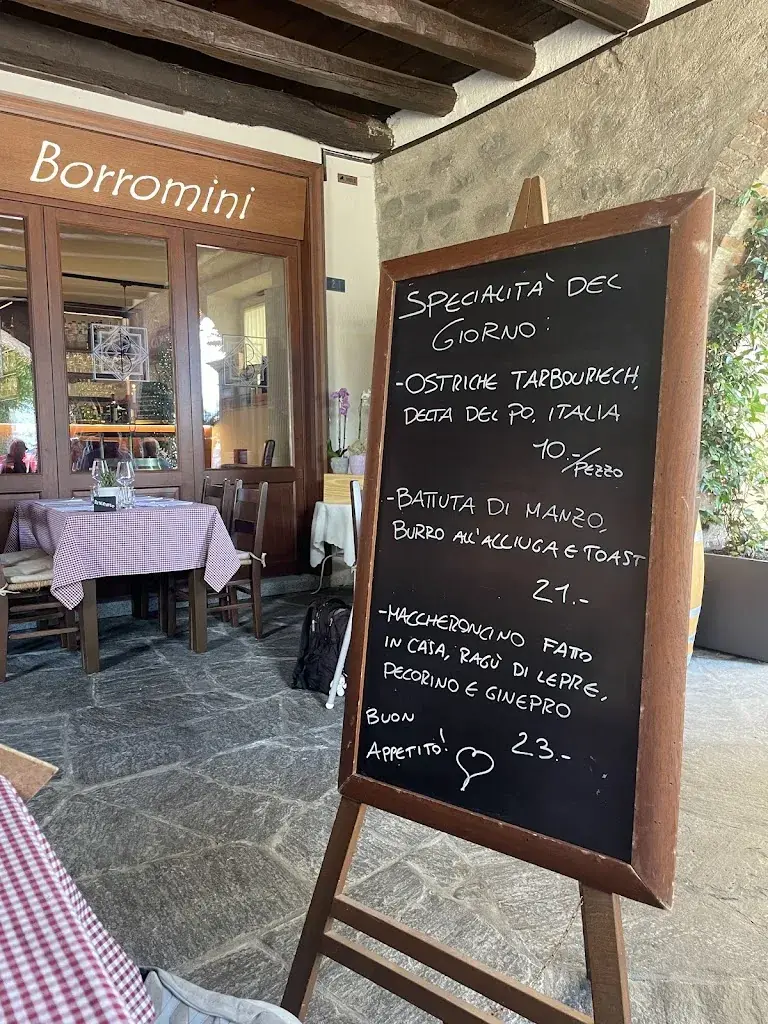 Borromini
SPECIALITÀ DEL
GIORNO:
-OSTRICHE TARBOURIECH,
DELTA DEL PO, ITALIA
10.-/PEZZO
-BATTUTA DI MANZO,
BURRO ALL'ALLIUGA E TOAST
21.-
-MACCHERONCINO FATTO
IN CASA, RAGÙ DI LEPRE,
PECORINO E GINEPRO
23.-
BUON
APPETITO!